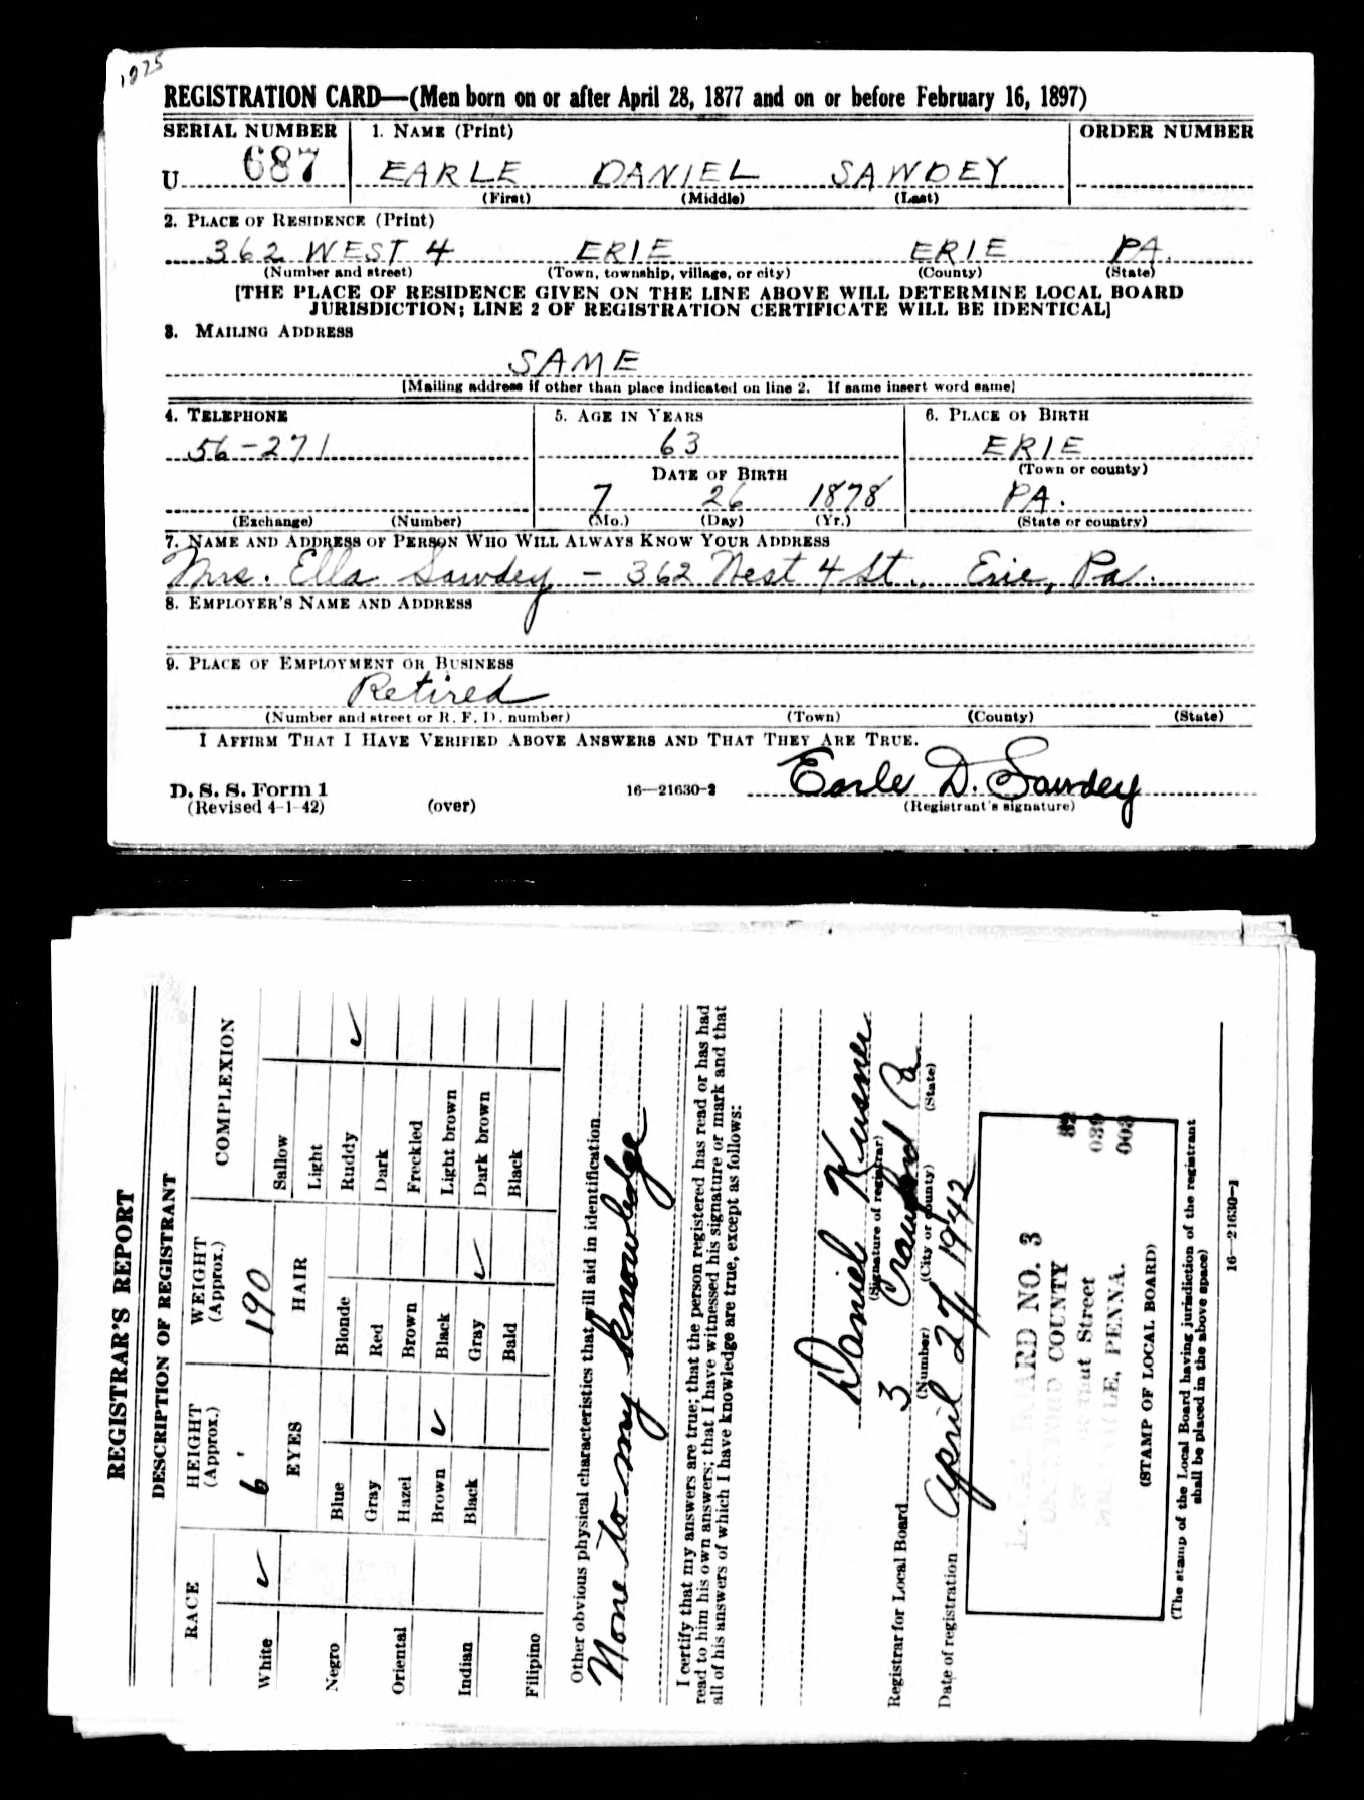 1025
REGISTRATION CARD—(Men born on or after April 28, 1877 and on or before February 16, 1897)
SERIAL NUMBER 1. NAME (Print) ORDER NUMBER
U 687 EARLE DANIEL SAWDEY
(First) (Middle) (Last)
2. PLACE OF RESIDENCE (Print)
362 WEST 4 ERIE ERIE PA.
(Number and street) (Town, township, village, or city) (County) (State)
[THE PLACE OF RESIDENCE GIVEN ON THE LINE ABOVE WILL DETERMINE LOCAL BOARD
JURISDICTION; LINE 2 OF REGISTRATION CERTIFICATE WILL BE IDENTICAL]
3. MAILING ADDRESS
SAME
[Mailing address if other than place indicated on line 2. If same insert word same]
4. TELEPHONE 5. AGE IN YEARS 6. PLACE OF BIRTH
56-271 63 ERIE
DATE OF BIRTH (Town or county)
7 26 1878 PA.
(Exchange) (Number) (Mo.) (Day) (Yr.) (State or country)
7. NAME AND ADDRESS OF PERSON WHO WILL ALWAYS KNOW YOUR ADDRESS
Mrs. Ella Sawdey - 362 West 4 St., Erie, Pa.
8. EMPLOYER'S NAME AND ADDRESS
9. PLACE OF EMPLOYMENT OR BUSINESS
Retired
(Number and street or R. F. D. number) (Town) (County) (State)
I AFFIRM THAT I HAVE VERIFIED ABOVE ANSWERS AND THAT THEY ARE TRUE.
D. S. S. Form 1 16—21630-2 Earle D. Sawdey
(Revised 4-1-42) (over) (Registrant's signature)
REGISTRAR'S REPORT
DESCRIPTION OF REGISTRANT
RACE HEIGHT (Approx.) WEIGHT (Approx.) COMPLEXION
White ✓ 6' 190 Sallow
EYES HAIR Light
Negro Blue Blonde Ruddy ✓
Gray Red Dark
Oriental Hazel Brown Freckled
Brown ✓ Black Light brown
Indian Black Gray ✓ Dark brown
Bald Black
Filipino
Other obvious physical characteristics that will aid in identification
None to my knowledge
I certify that my answers are true; that the person registered has read or has had
read to him his own answers; that I have witnessed his signature or mark and that
all of his answers of which I have knowledge are true, except as follows:
Daniel Kusner
(Signature of registrar)
Registrar for Local Board 3 Crawford Pa
(Number) (City or county) (State)
Date of registration April 27 1942
BOARD NO. 3 82
COUNTY 039
Street 003
PENNA.
(STAMP OF LOCAL BOARD)
(The stamp of the Local Board having jurisdiction of the registrant
shall be placed in the above space)
16—21630-1